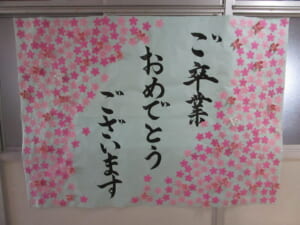 ご卒業
おめでとう
ございます